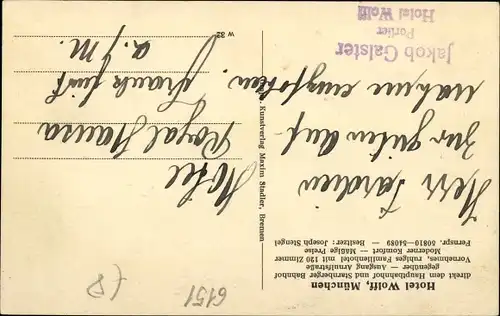 Hotel Wolff, München
direkt dem Hauptbahnhof und Starnberger Bahnhof
gegenüber — Ausgang Arnulfstraße
Vornehmes, ruhiges Familienhotel mit 120 Zimmer
Moderner Komfort — Mäßige Preise
Fernspr. 50810—54089 — Besitzer: Joseph Stengel
Herr
zur guten Auf-
nahme empfohlen.
Jakob Galster
Portier
Hotel Wolff
Kunstverlag Maxim Stadler, Bremen
Hotel
Royal Nassau
Frankfurt
a./M.
W 32
6151